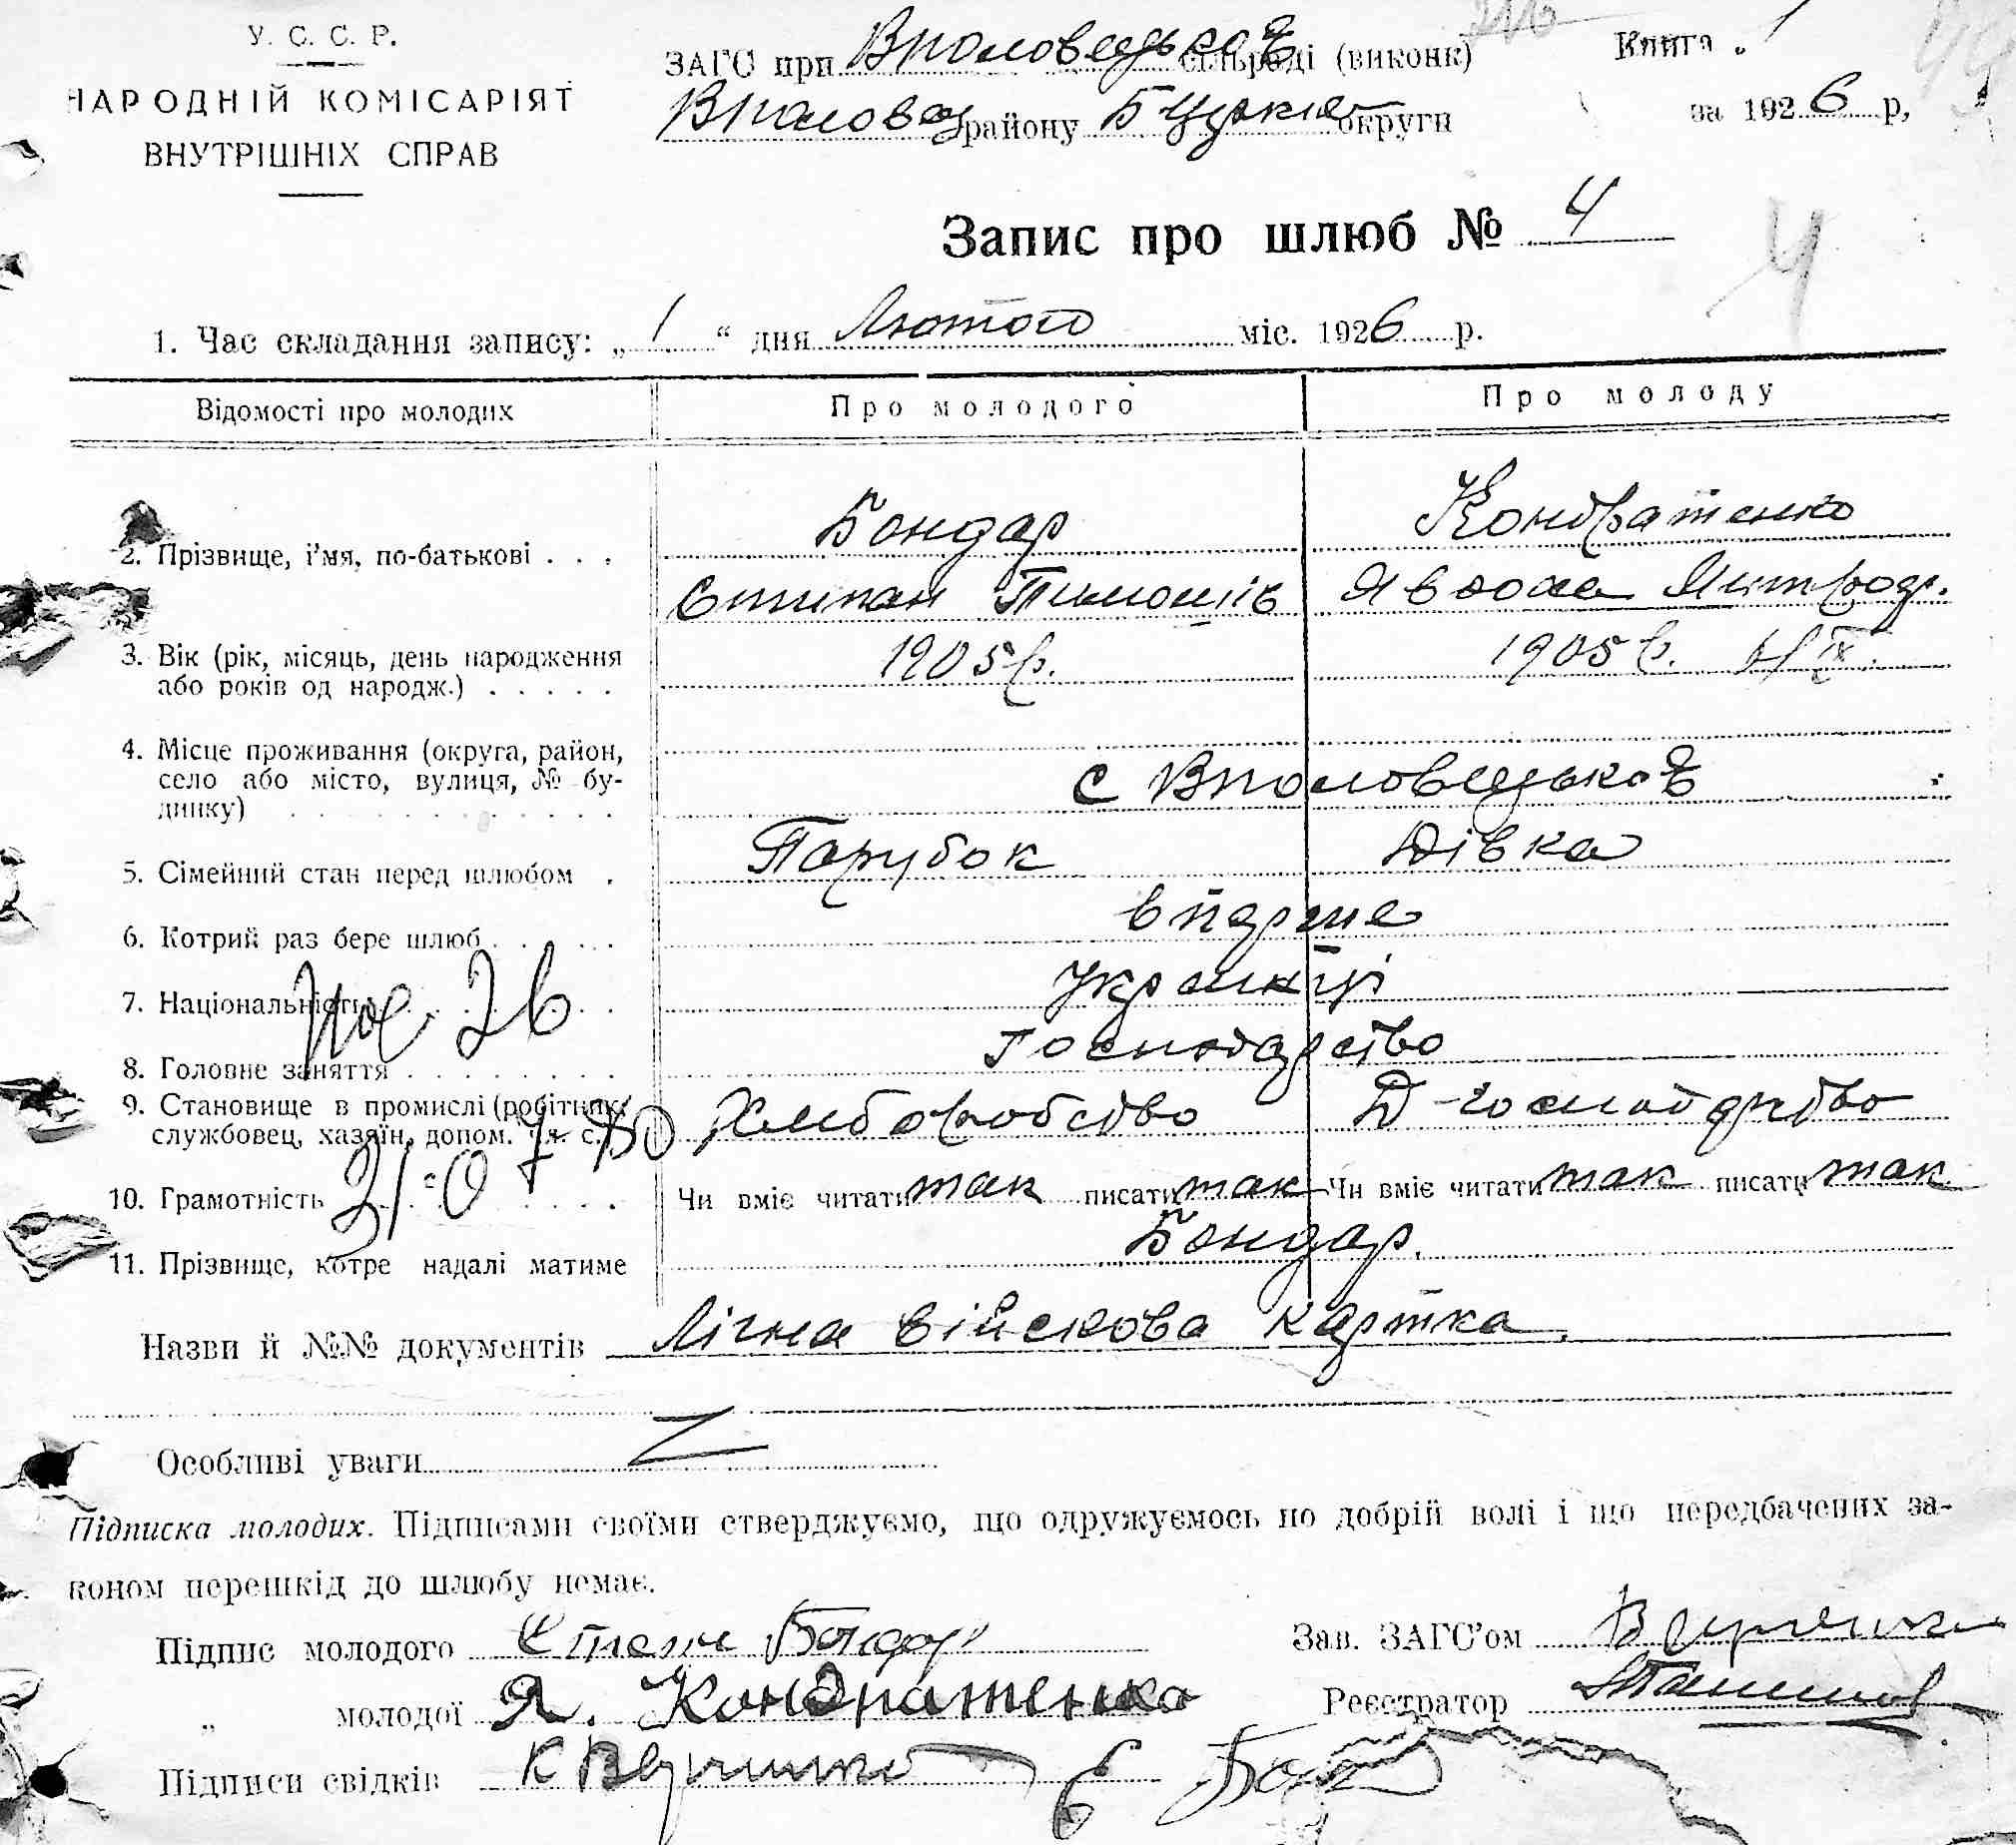 У. С. С. Р.
НАРОДНІЙ КОМІСАРІЯТ
ВНУТРІШНІХ СПРАВ
ЗАГС при Вполовецькой сільраді (виконк)
Вполовец району Бицьків округи
Книга 1
за 1926 р,
Запис про шлюб № 4
4
1. Час складання запису: „1“ дня Лютого міс. 1926 р.
Відомості про молодих
Про молодого
Про молоду
2. Прізвище, і'мя, по-батькові . . .
Бондар
Кондратенко
Степан Тимошів
Явдоха
3. Вік (рік, місяць, день народження
або років од народж.) . . . . .
1905 р.
1905 р.
4. Місце проживання (округа, район,
село або місто, вулиця, № бу-
динку)
с Вполовецькой
5. Сімейний стан перед шлюбом .
Парубок
Дівка
6. Котрий раз бере шлюб . . . .
вперше
7. Національність
Українці
8. Головне заняття
Господарство
9. Становище в промислі (робітник,
службовец, хазяїн, допом. чл. с.)
Хліборобство
Д-господарство
10. Грамотність
Чи вміє читати так писати так
Чи вміє читати так писати так
11. Прізвище, котре надалі матиме
Бондар.
Назви й №№ документів Лічна війскова картка.
Особливі уваги
Підписка молодих. Підписами своїми стверджуємо, що одружуємось по добрій волі і що передбачених за-
коном перешкід до шлюбу немає.
Підпис молодого Степан Бондар
Зав. ЗАГС'ом
„ молодої Я. Кондратенко
Реєстратор
Підписи свідків